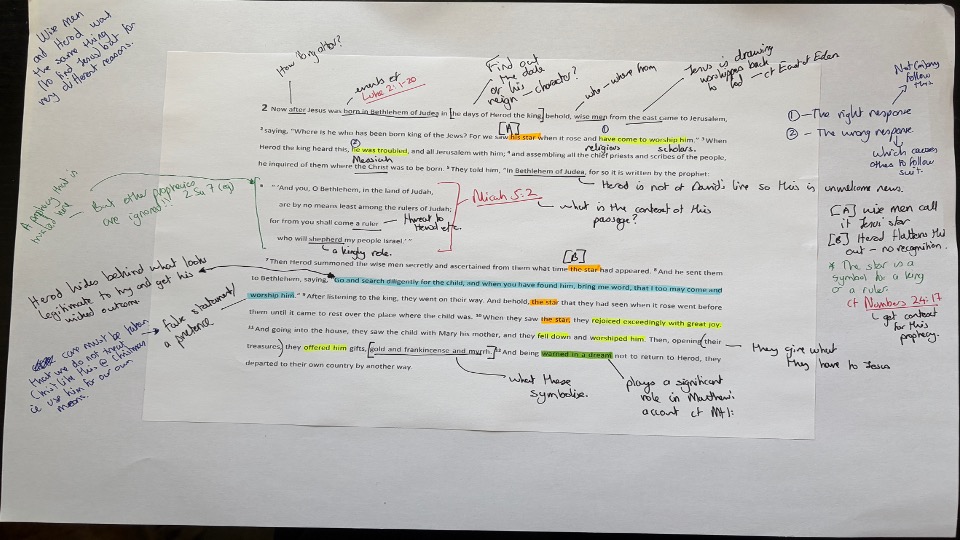 Wise men
and Herod want
the same thing
(to find Jesus) but for
very different reasons.
How long after?
events of
Luke 2:1-20
Find out
the date
of his
reign - character?
who - where from
Jesus is drawing
worshippers back
to God - cf East of Eden
Not (m)any
follow
this
① - The right response
② - The wrong response
which causes
others to follow
suit.
2 Now after Jesus was born in Bethlehem of Judea in [the days of Herod the king] behold, wise men from the east came to Jerusalem,
[A] ①
2 saying, "Where is he who has been born king of the Jews? For we saw his star when it rose and have come to worship him." 3 When
② religious scholars.
Herod the king heard this, he was troubled, and all Jerusalem with him; 4 and assembling all the chief priests and scribes of the people,
Messiah
he inquired of them where the Christ was to be born. 5 They told him, "In Bethlehem of Judea, for so it is written by the prophet:
Herod is not of David's line so this is unwelcome news.
A prophecy that is
trusted here
But other prophecies
are ignored!! 2 Sa 7 (eg)
6 "'And you, O Bethlehem, in the land of Judah,
are by no means least among the rulers of Judah;
for from you shall come a ruler
who will shepherd my people Israel.'"
threat to
Herod etc.
a kingly role.
Micah 5:2
what is the context of this
passage?
[A] wise men call
it Jesus' star
[B] Herod flattens this
out - no recognition.
* The star is a
symbol for a king
or a ruler.
cf Numbers 24:17
get context
for this
prophecy.
[B]
7 Then Herod summoned the wise men secretly and ascertained from them what time the star had appeared. 8 And he sent them
to Bethlehem, saying, "Go and search diligently for the child, and when you have found him, bring me word, that I too may come and
worship him." 9 After listening to the king, they went on their way. And behold, the star that they had seen when it rose went before
them until it came to rest over the place where the child was. 10 When they saw the star, they rejoiced exceedingly with great joy.
11 And going into the house, they saw the child with Mary his mother, and they fell down and worshiped him. Then, opening (their
treasures,) they offered him gifts, [gold and frankincense and myrrh.] 12 And being warned in a dream not to return to Herod, they
departed to their own country by another way.
Herod hides behind what looks
legitimate to try and get his
wicked outcome
fake statement/
a pretence
care must be taken
that we do not treat
Christ like this @ Christmas
ie use him for our own
means.
what these
symbolise.
plays a significant
role in Matthew's
account cf Mt 1:
they give what
they have to Jesus